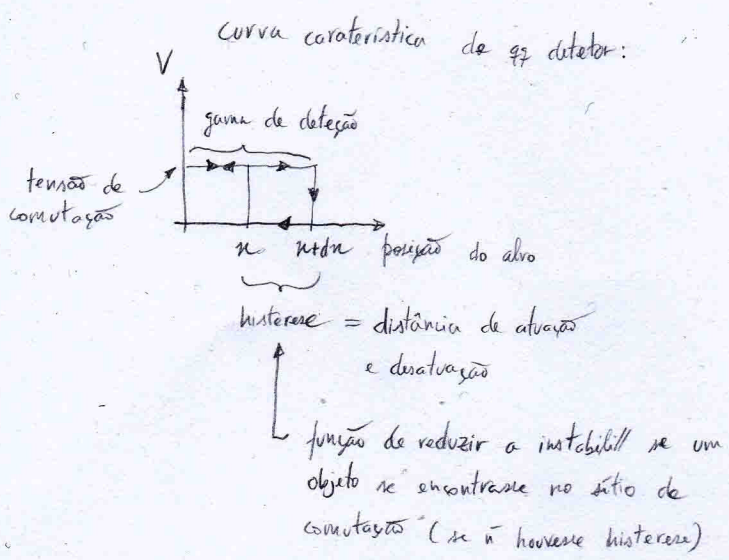 curva caraterística de qq detetor:
V
gama de deteção
tensão de
comutação
x x+dx posição do alvo
histerese = distância de atuação
e desatuação
função de reduzir a instabili// se um
objeto se encontrasse no sítio de
comutação (se ñ houvesse histerese)